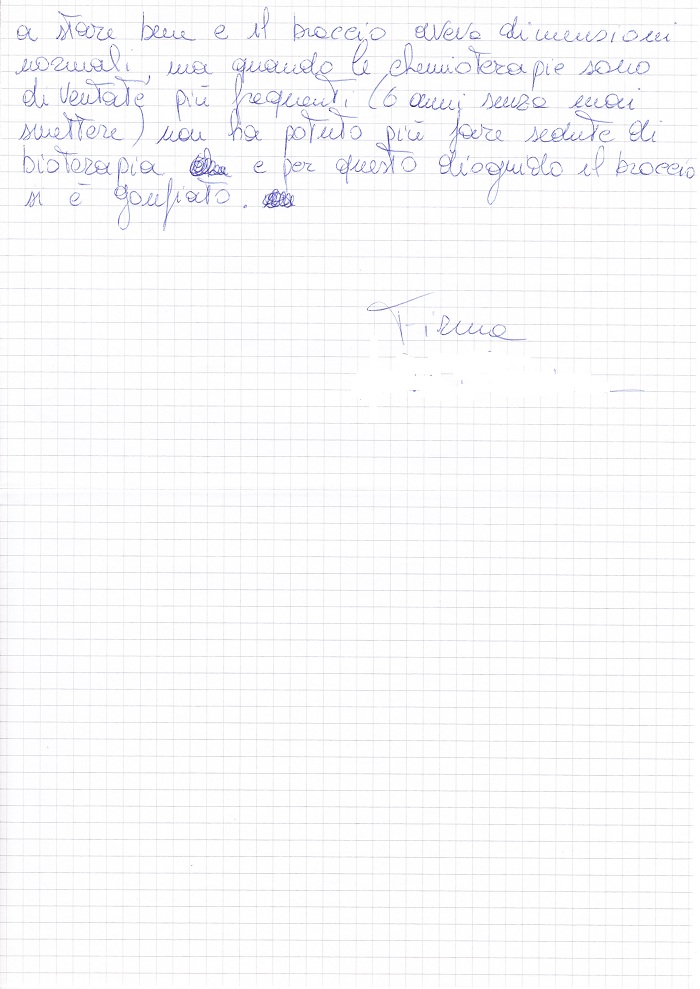 a stare bene e il braccio aveva dimensioni
normali, ma quando le chemioterapie sono
diventate più frequenti (6 anni senza mai
smettere) non ha potuto più fare sedute di
bioterapia e per questo il braccio
si è gonfiato.
Firma